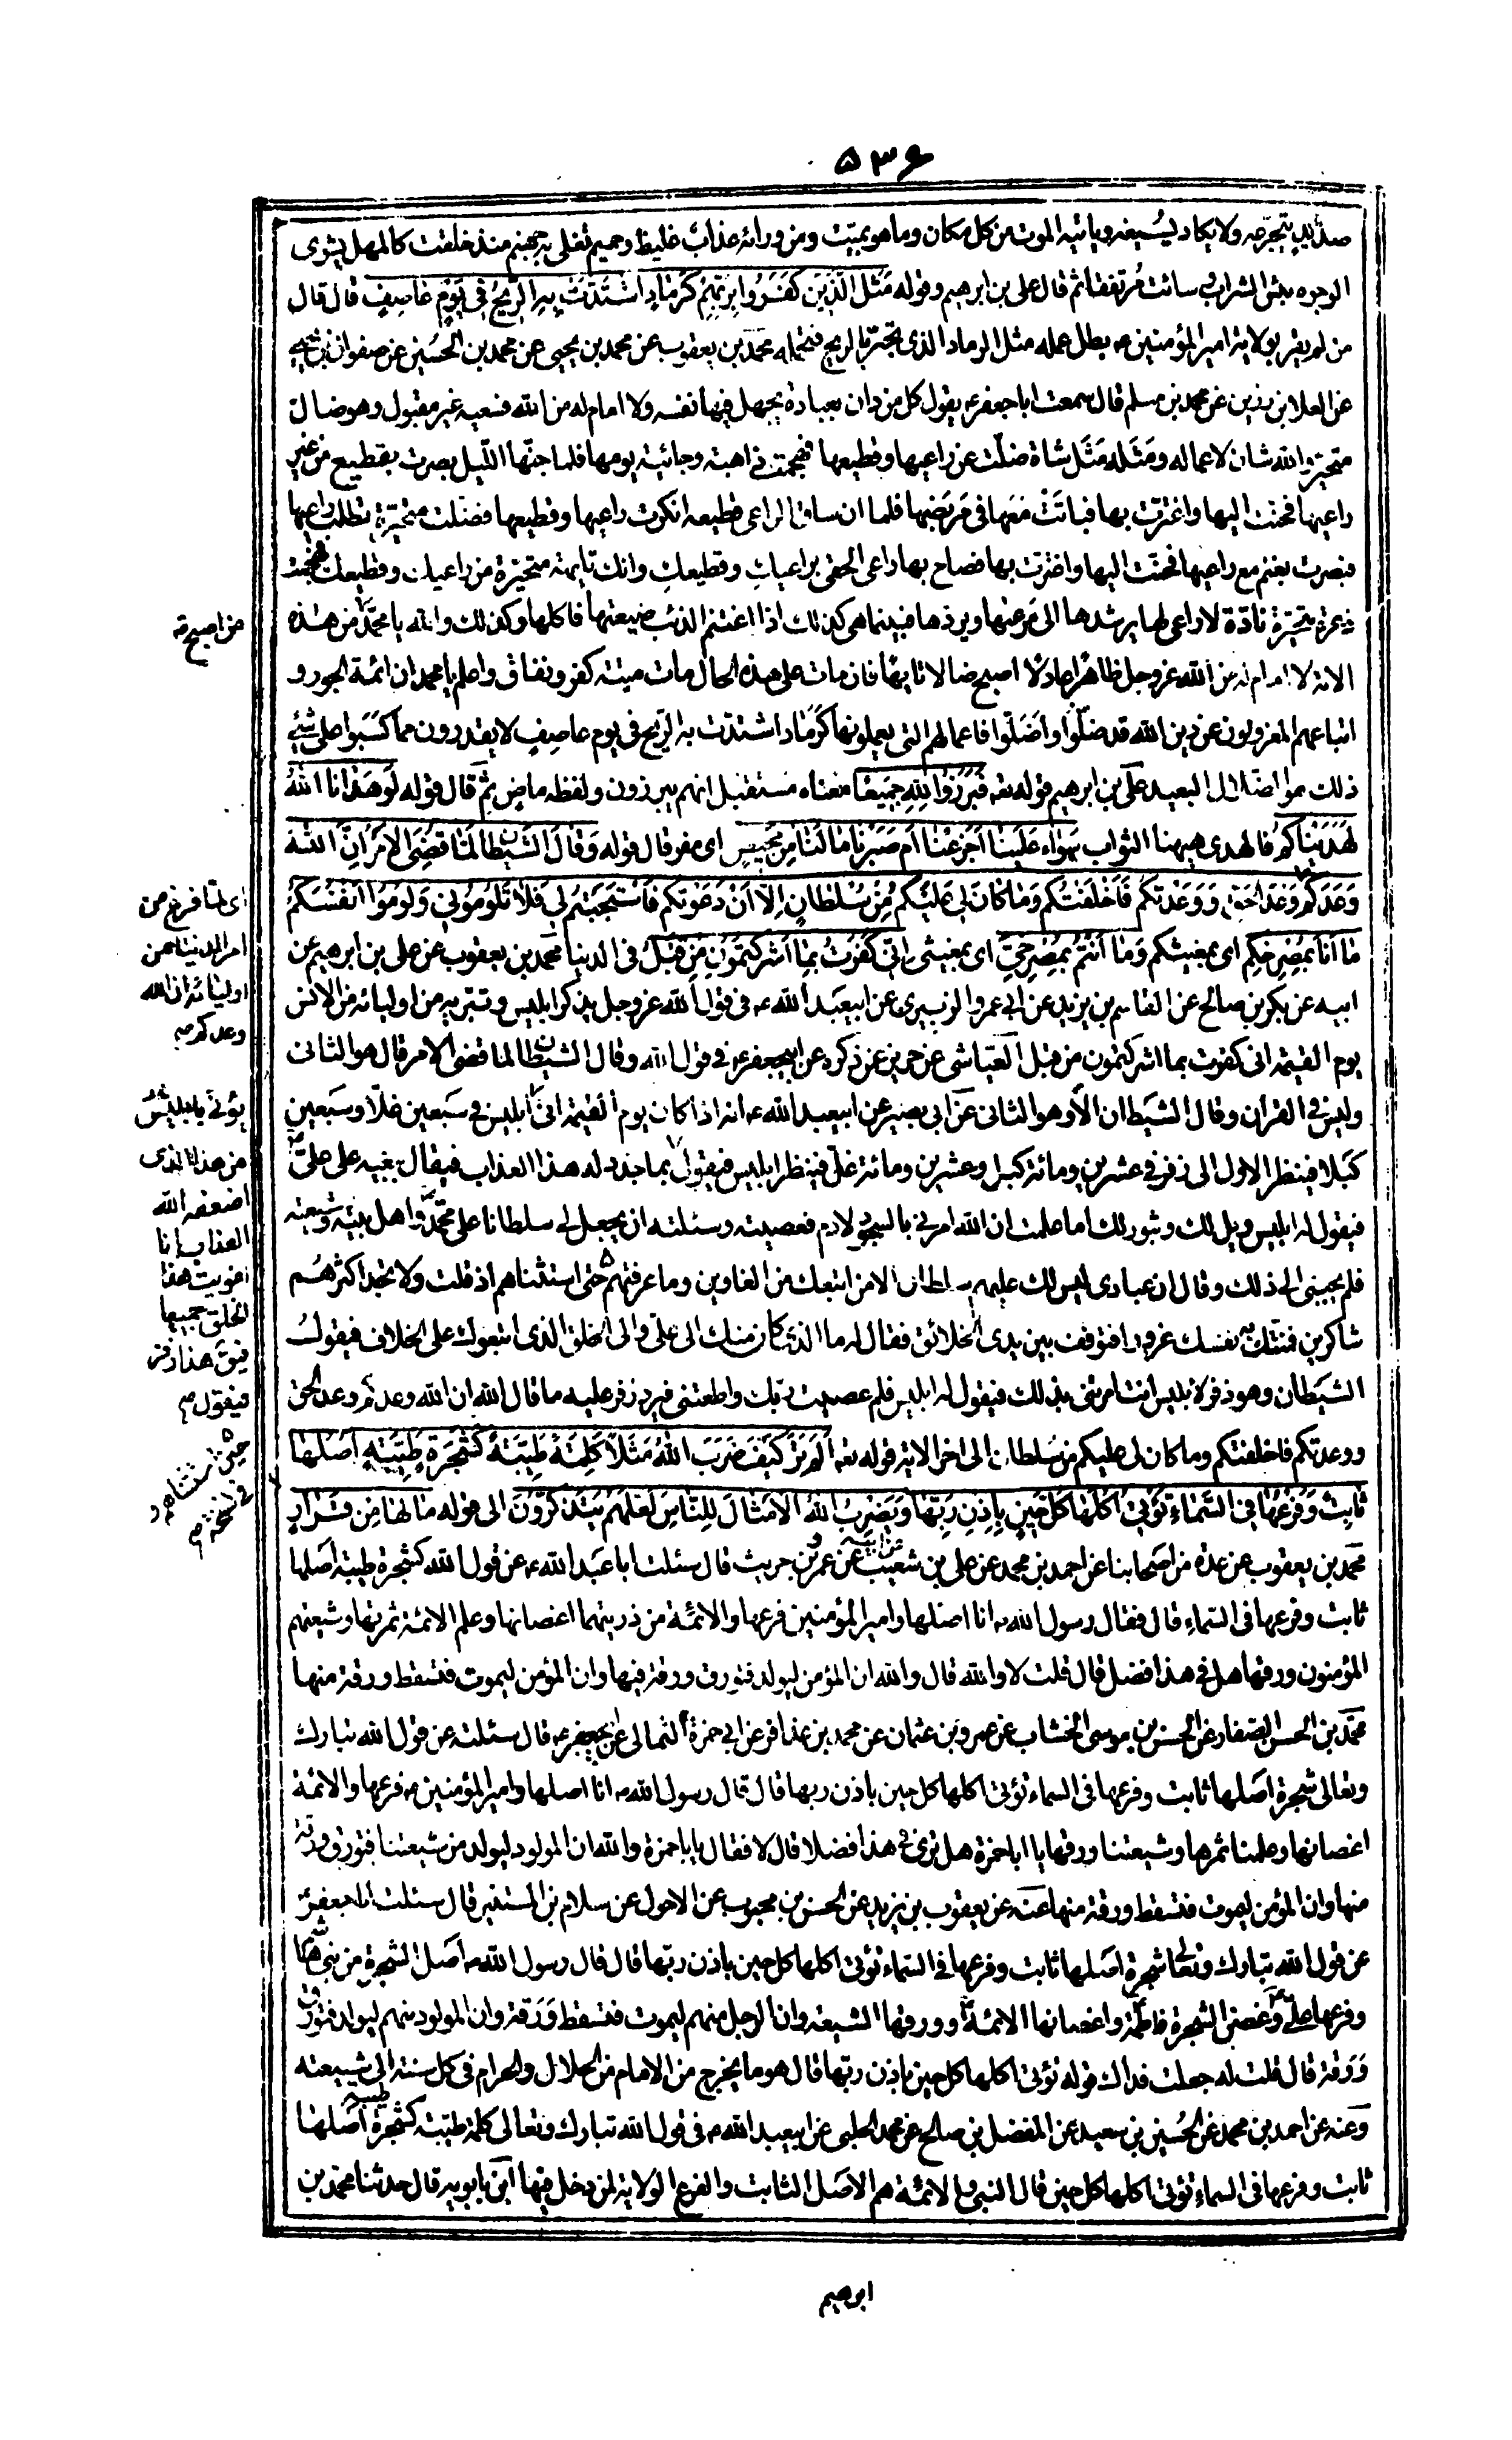 ۵۳۶
صديد يتجرعه ولا يكاد يسيغه ويأتيه الموت من كل مكان وما هو بميت ومن ورائه عذاب غليظ وحميم تغلى به جهنم منذ خلقت كالمهل يشوى
الوجوه بئس الشراب وسائت مرتفقا ثم قال على بن ابرهيم وقوله مَثَل الَّذينَ كَفَرُوا بِرَبِّهِمْ كَرَمادٍ اشْتَدَّتْ بِهِ الرّيحُ فى يَوْمٍ عاصِفٍ قال قال
من لم يقر بولاية امير المؤمنين ع بطل عمله مثل الرماد الذى تجئ الريح فتحمله محمد بن يعقوب عن محمد بن يحيى عن محمد بن الحسين عن صفوان بن يحيى
عن العلا بن رزين عن محمد بن مسلم قال سمعت ابا جعفر ع يقول كل من دان بعبادة يجهل فيها نفسه ولا امام له من الله فسعيه غير مقبول وهو ضال
متحير والله شان لاعماله ومَثَله مَثَل شاة ضلّت عن راعيها وقطيعها فهجمت ذاهبة وجائية يومها فلما جنّها اللّيل بصرت بقطيع من غير
راعيها فحنت اليها واغترت بها فباتَتْ مَعَها فى مَربَضِها فلما ان ساق الراعى قطيعه انكرت راعيها وقطيعها فضلت متحيرة تطلب راعيها
فبصرت بغنم مع راعيها فحنت اليها واغترت بها فصاح بها راعى الحقى براعيك وقطيعك وانك تايهة متحيرة من راعيك وقطيعك فهجمت
ذعرة متحيرة نادّة لا راعى لها يرشدها الى مرعيها ويردها فبينما هى كذلك اذا اغتنم الذئب ضيعتها فاكلها وكذلك والله يا محمد من هذه
الامة لا امام له من الله عز وجل ظاهرا عادلا اصبح ضالا تايها فان مات على هذه الحال مات ميتة كفر ونفاق واعلم يا محمد ان ائمة الجور و
اتباعهم لمعزولون عن دين الله قد ضلّوا واَضَلّوا فاعمالهم التى يعملونها كَرَماد اشتدّت به الريح فى يوم عاصفٍ لا يقدرون مما كَسَبوا على شئ
ذلك هو الضلال البعيد على بن ابرهيم قوله تعه فَبَرَزُوا لِلّهِ جَميعًا معناه مستقبل انهم يبرزون ولفظه ماض ثم قال قوله لَوْ هَدانا اللهُ
لَهَدَيْناكُمْ فالهدى هيهنا الثواب سَواء عَلَينا اَجَزِعْنا اَم صَبَرْنا مالَنا مِن مَحيصٍ اى مفر قال قوله وَقالَ الشَّيطانُ لَمّا قُضِىَ الاَمْرُ اِنَّ اللهَ
وَعَدَكُمْ وَعْدَ الحَقِّ وَوَعَدْتُكُم فَاَخْلَفْتُكُم وَما كانَ لِىَ عَلَيْكُم مِنْ سُلْطانٍ اِلّا اَنْ دَعَوْتُكُم فَاسْتَجَبْتُم لى فَلا تَلُومُونى وَلُومُوا اَنْفُسَكُم
ما اَنا بِمُصْرِخِكُم اى بمغيثكم وَما اَنْتُم بِمُصْرِخِىَّ اى بمغيثى اِنّى كَفَرْتُ بِما اَشْرَكْتُمُونِ مِن قَبْلُ فى الدنيا محمد بن يعقوب عن على بن ابرهيم عن
ابيه عن بكر بن صالح عن القاسم بن يزيد عن ابى عمرو الزبيرى عن ابيعبد الله ع فى قول الله عز وجل يذكر ابليس وتبريه من اوليائه من الانس
يوم القيمة انى كفرت بما اشركتمون من قبل العيّاشى عن حريز عن ذكره عن ابيجعفر ع فى قول الله وقال الشيطان لما قضى الامر قال هو الثانى
وليس فى القران وقال الشيطان الا وهو الثانى عن ابى بصير عن ابيعبد الله ع انه اذا كان يوم القيمة اتى بابليس فى سبعين غلا وسبعين
كبلا فينظر الاول الى زفر فى عشرين ومائة كبل وعشرين ومائة غل فينظر ابليس فيقول بما حدد له هذا العذاب فيقال ببغيه على علىّ
فيقول له ابليس ويل لك وثبور لك اما علمت ان الله امرنى بالسجود لادم فعصيته وسئلته ان يجعل لى سلطانا على محمد واهل بيته وشيعته
فلم يجبنى الى ذلك وقال ان عبادى ليس لك عليهم سلطان الا من اتبعك من الغاوين وما عرفتهم حتى استثناهم اذ قلت ولا تجد اكثرهم
شاكرين فمنتك به نفسك غرورا فتوقف بين يدى الخلائق فقال له ما الذى كان منك الى على والى الخلق الذى اتبعوك على الخلاف فيقول
الشيطان وهو زفر لابليس انت امرتنى بذلك فيقول له ابليس فلم عصيت ربك واطعتنى فيرد زفر عليه ما قال الله ان الله وعدكم وعد الحق
ووعدتكم فاخلفتكم وما كان لى عليكم من سلطان الى اخر الاية قوله تعه اَلَم تَرَ كَيْفَ ضَرَبَ اللهُ مَثَلًا كَلِمَةً طَيِّبَةً كَشَجَرَةٍ طَيِّبَةٍ اَصْلُها
ثابِتٌ وَفَرْعُها فِى السَّماءِ تُؤْتى اُكُلَها كُلَّ حينٍ بِاِذْنِ رَبِّها وَيَضْرِبُ اللهُ الاَمْثالَ لِلنّاسِ لَعَلَّهُم يَتَذَكَّرُونَ الى قوله مالَها مِن قَرارٍ
محمد بن يعقوب عن عدة من اصحابنا عن احمد بن محمد عن على بن شعيب عن عمرو بن حريث قال سئلت ابا عبد الله ع عن قول الله كشجرة طيبة اصلها
ثابت وفرعها فى السماء قال فقال رسول الله ص انا اصلها وامير المؤمنين فرعها والائمة من ذريتهما اغصانها وعلم الائمة ثمرتها وشيعتهم
المؤمنون ورقها هل فى هذا فضل قال قلت لا والله قال والله ان المؤمن ليولد فتورق ورقة فيها وان المؤمن ليموت فتسقط ورقة منها
محمد بن الحسن الصفار عن الحسن بن موسى الخشاب عن عمرو بن عثمان عن محمد بن عذافر عن ابى حمزة الثمالى عن ابيجعفر ع قال سئلته عن قول الله تبارك
وتعالى شجرة اصلها ثابت وفرعها فى السماء تؤتى اكلها كل حين باذن ربها قال قال رسول الله ص انا اصلها وامير المؤمنين ع فرعها والائمة
اغصانها وعلمنا ثمرها وشيعتنا ورقها يا ابا حمزة هل ترى فى هذا فضلا قال لا فقال يا ابا حمزة والله ان المولود ليولد من شيعتنا فتورق ورقة
منها وان المؤمن ليموت فتسقط ورقة منها عنه عن يعقوب بن يزيد عن الحسن بن محبوب عن الاحول عن سلام بن المستنير قال سئلت ابا جعفر ع
عن قول الله تبارك وتعالى شجرة اصلها ثابت وفرعها فى السماء تؤتى اكلها كل حين باذن ربها قال قال رسول الله ص اصل الشجرة من بنى هاشم
وفرعها على ع وغصن الشجرة فاطمة واغصانها الائمة وورقها الشيعة وان الرجل منهم ليموت فتسقط وَرَقة وان المولود منهم ليولد فتورق
وَرَقة قال قلت له جعلت فداك قوله تؤتى اكلها كل حين باذن ربها قال هو ما يخرج من الامام من الحلال والحرام فى كل سنة الى شيعته
وعنه عن احمد بن محمد عن الحسين بن سعيد عن المفضل بن صالح عن محمد الحلبى عن ابيعبد الله ع فى قول الله تبارك وتعالى كلمة طيبة كشجرة طيبة اصلها
ثابت وفرعها فى السماء تؤتى اكلها كل حين قال النبى والائمة هم الاصل الثابت والفرع الولاية لمن دخل فيها ابن بابويه قال حدثنا محمد بن
من اصبح
اى لما فرغ من
امر الدنيا من
اوليائه ان الله
وعدكم
يؤتى بابليس
من هذا الذى
اضعفه الله
العذاب انا
اغويت هذا
الخلق جميعا
فيقال هذا زفر
فيقول
حين استثناهم
فى نسخة
ابرهيم